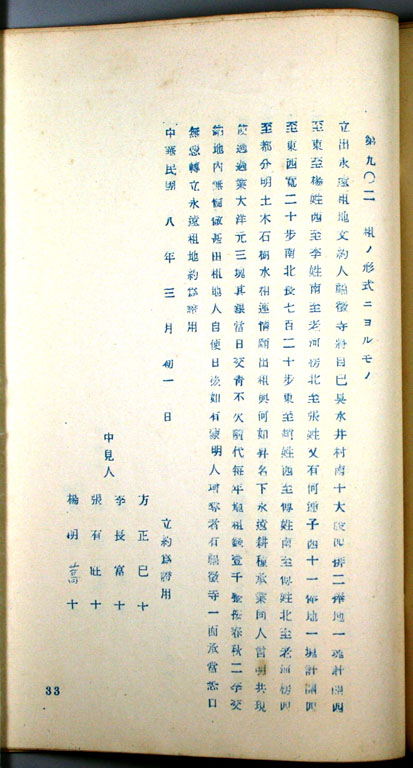 第九〇二 租ノ形式ニヨルモノ
立出永遠租地文約人福徵寺將自己吳水井村南十大段四俤二俤地一塊計開四
至東至楊姓西至李姓南至老河榜北至張姓又有河堙子西十一俤地一塊計開四
至東西寬二十步南北長七百二十步東至趙姓西至傅姓南至傅姓北至老河榜四
至都分明土木石樹水相連情願出租與何如昇名下永遠耕種承業同人言明共現
使過過業大洋元三塊其銀當日交靑不欠前代每年地租錢壹千整按春秋二季交
納地內無論做甚由租地人自便日後如有豪明人爭奪者有福徵寺一面承當恐口
無憑轉立永遠租地約爲證用
中華民國 八 年 三 月 初 一 日
立約爲證用
中見人
方正巳十
李長富十
張有旺十
楊明萬十
33